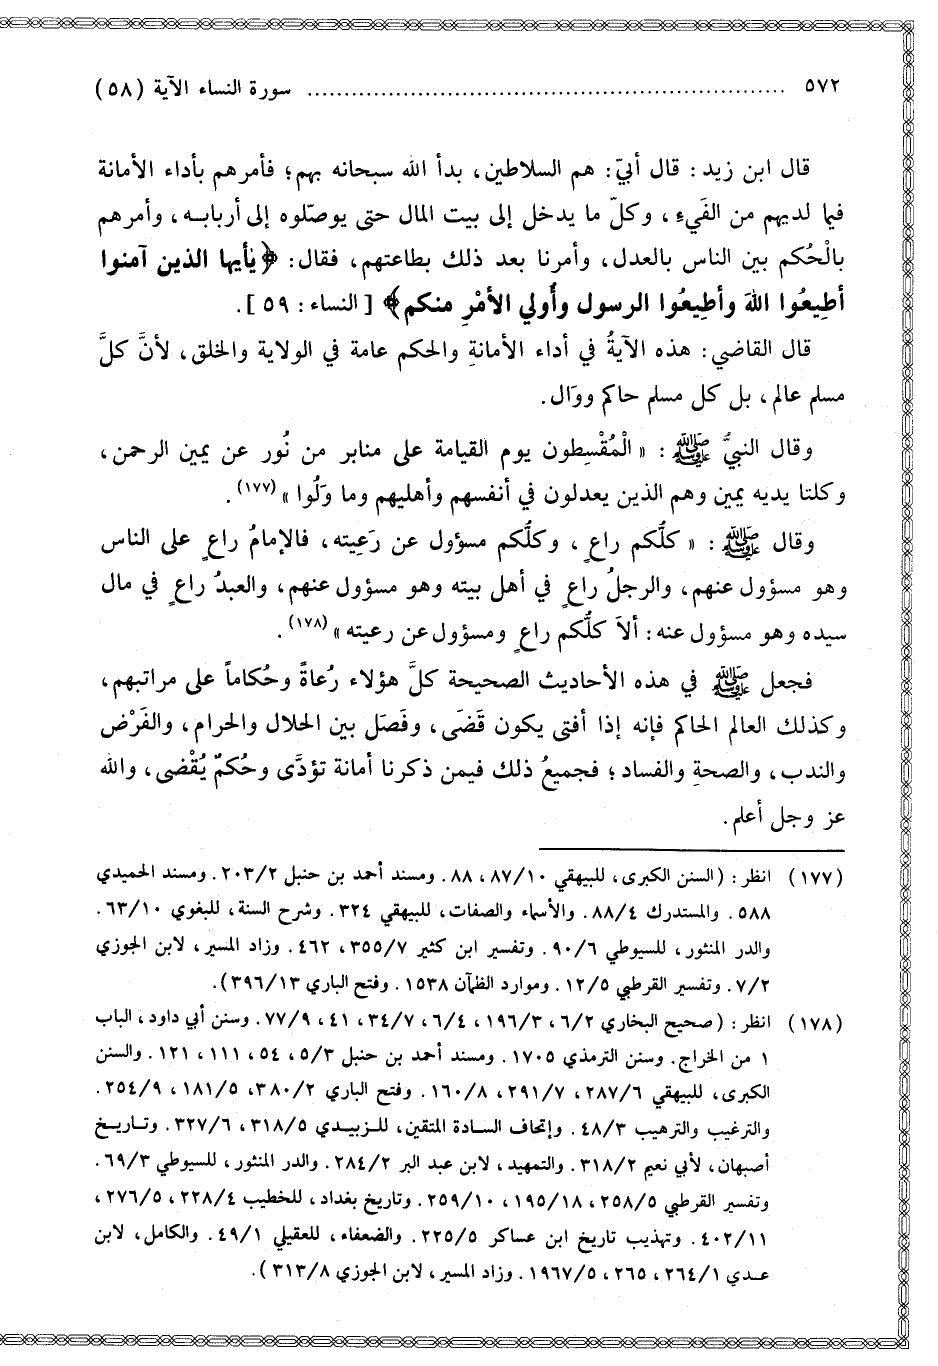 ٥٧٢ ........................................ سورة النساء الآية (٥٨)
قال ابن زيد: قال أبيّ: هم السلاطين، بدأ الله سبحانه بهم؛ فأمرهم بأداء الأمانة
فيما لديهم من الفَيءِ، وكلّ ما يدخل إلى بيت المال حتى يوصّلوه إلى أربابه، وأمرهم
بالْحُكم بين الناس بالعدل، وأمرنا بعد ذلك بطاعتهم، فقال: ﴿يٰأيها الذين آمنوا
أطِيعُوا اللهَ وأطِيعُوا الرسول وأُولي الأمْرِ منكم﴾ [النساء: ٥٩].
قال القاضي: هذه الآيةُ في أداء الأمانةِ والحكم عامة في الولاية والخلق، لأنَّ كلَّ
مسلم عالم، بل كل مسلم حاكم ووَال.
وقال النبيُّ ﷺ: «الْمُقْسِطون يوم القيامة على منابر من نُور عن يمين الرحمن،
وكلتا يديه يمين وهم الذين يعدلون في أنفسهم وأهليهم وما وَلُوا» (١٧٧).
وقال ﷺ: «كلُّكم راعٍ، وكلُّكم مسؤول عن رَعِيته، فالإمامُ راعٍ على الناس
وهو مسؤول عنهم، والرجلُ راعٍ في أهل بيته وهو مسؤول عنهم، والعبدُ راعٍ في مال
سيده وهو مسؤول عنه: ألاَ كلُّكم راعٍ ومسؤول عن رعيته» (١٧٨).
فجعل ﷺ في هذه الأحاديث الصحيحة كلَّ هؤلاء رُعاةً وحُكاماً على مراتبهم،
وكذلك العالم الحاكم فإنه إذا أفتى يكون قَضَى، وفَصَل بين الحلال والحرام، والفَرْض
والندب، والصحةِ والفساد؛ فجميعُ ذلك فيمن ذكرنا أمانة تؤدَّى وحُكمٌ يُقْضى، والله
عز وجل أعلم.
(١٧٧) انظر: (السنن الكبرى، للبيهقي ٨٧/١٠، ٨٨. ومسند أحمد بن حنبل ٢٠٣/٢. ومسند الحميدي
٥٨٨. والمستدرك ٨٨/٤. والأسماء والصفات، للبيهقي ٣٢٤. وشرح السنة، للبغوي ٦٣/١٠.
والدر المنثور، للسيوطي ٩٠/٦. وتفسير ابن كثير ٣٥٥/٧، ٤٦٢. وزاد المسير، لابن الجوزي
٧/٢. وتفسير القرطبي ١٢/٥. وموارد الظمآن ١٥٣٨. وفتح الباري ٣٩٦/١٣).
(١٧٨) انظر: (صحيح البخاري ٦/٢، ١٩٦/٣، ٦/٤، ٣٤/٧، ٤١، ٧٧/٩. وسنن أبي داود، الباب
١ من الخراج. وسنن الترمذي ١٧٠٥. ومسند أحمد بن حنبل ٥/٣، ٥٤، ١١١، ١٢١. والسنن
الكبرى، للبيهقي ٢٨٧/٦، ٢٩١/٧، ١٦٠/٨. وفتح الباري ٣٨٠/٢، ١٨١/٥، ٢٥٤/٩.
والترغيب والترهيب ٤٨/٣. وإتحاف السادة المتقين، للزبيدي ٣١٨/٥، ٣٢٧/٦. وتاريخ
أصبهان، لأبي نعيم ٣١٨/٢. والتمهيد، لابن عبد البر ٢٨٤/٢. والدر المنثور، للسيوطي ٦٩/٣.
وتفسير القرطبي ٢٥٨/٥، ١٩٥/١٨، ٢٥٩/١٠. وتاريخ بغداد، للخطيب ٢٢٨/٤، ٢٧٦/٥،
٤٠٢/١١. وتهذيب تاريخ ابن عساكر ٢٢٥/٥. والضعفاء، للعقيلي ٤٩/١. والكامل، لابن
عدي ٢٦٤/١، ٢٦٥، ١٩٦٧/٥. وزاد المسير، لابن الجوزي ٣١٣/٨).